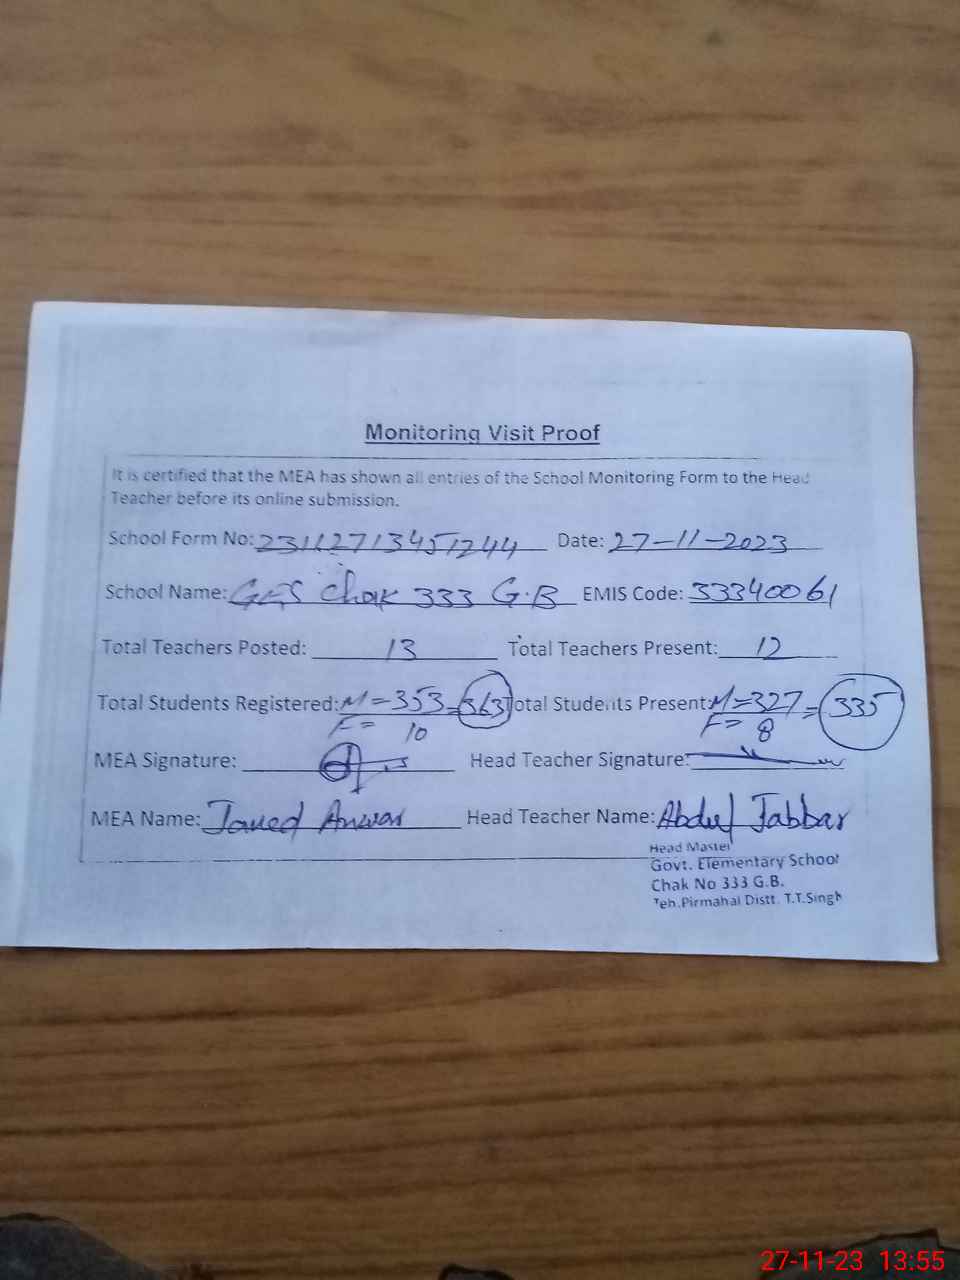 Monitoring Visit Proof
It is certified that the MEA has shown all entries of the School Monitoring Form to the Head
Teacher before its online submission.
School Form No: 23112713451244 Date: 27-11-2023
School Name: GES Chak 333 G.B EMIS Code: 33340061
Total Teachers Posted: 13 Total Teachers Present: 12
Total Students Registered: M=353=363 Total Students Present: M=327=335
F= 10 F= 8
MEA Signature: Head Teacher Signature:
MEA Name: Javed Anwar Head Teacher Name: Abdul Jabbar
Head Master
Govt. Elementary School
Chak No 333 G.B.
Teh.Pirmahal Distt. T.T.Singh
27-11-23 13:55